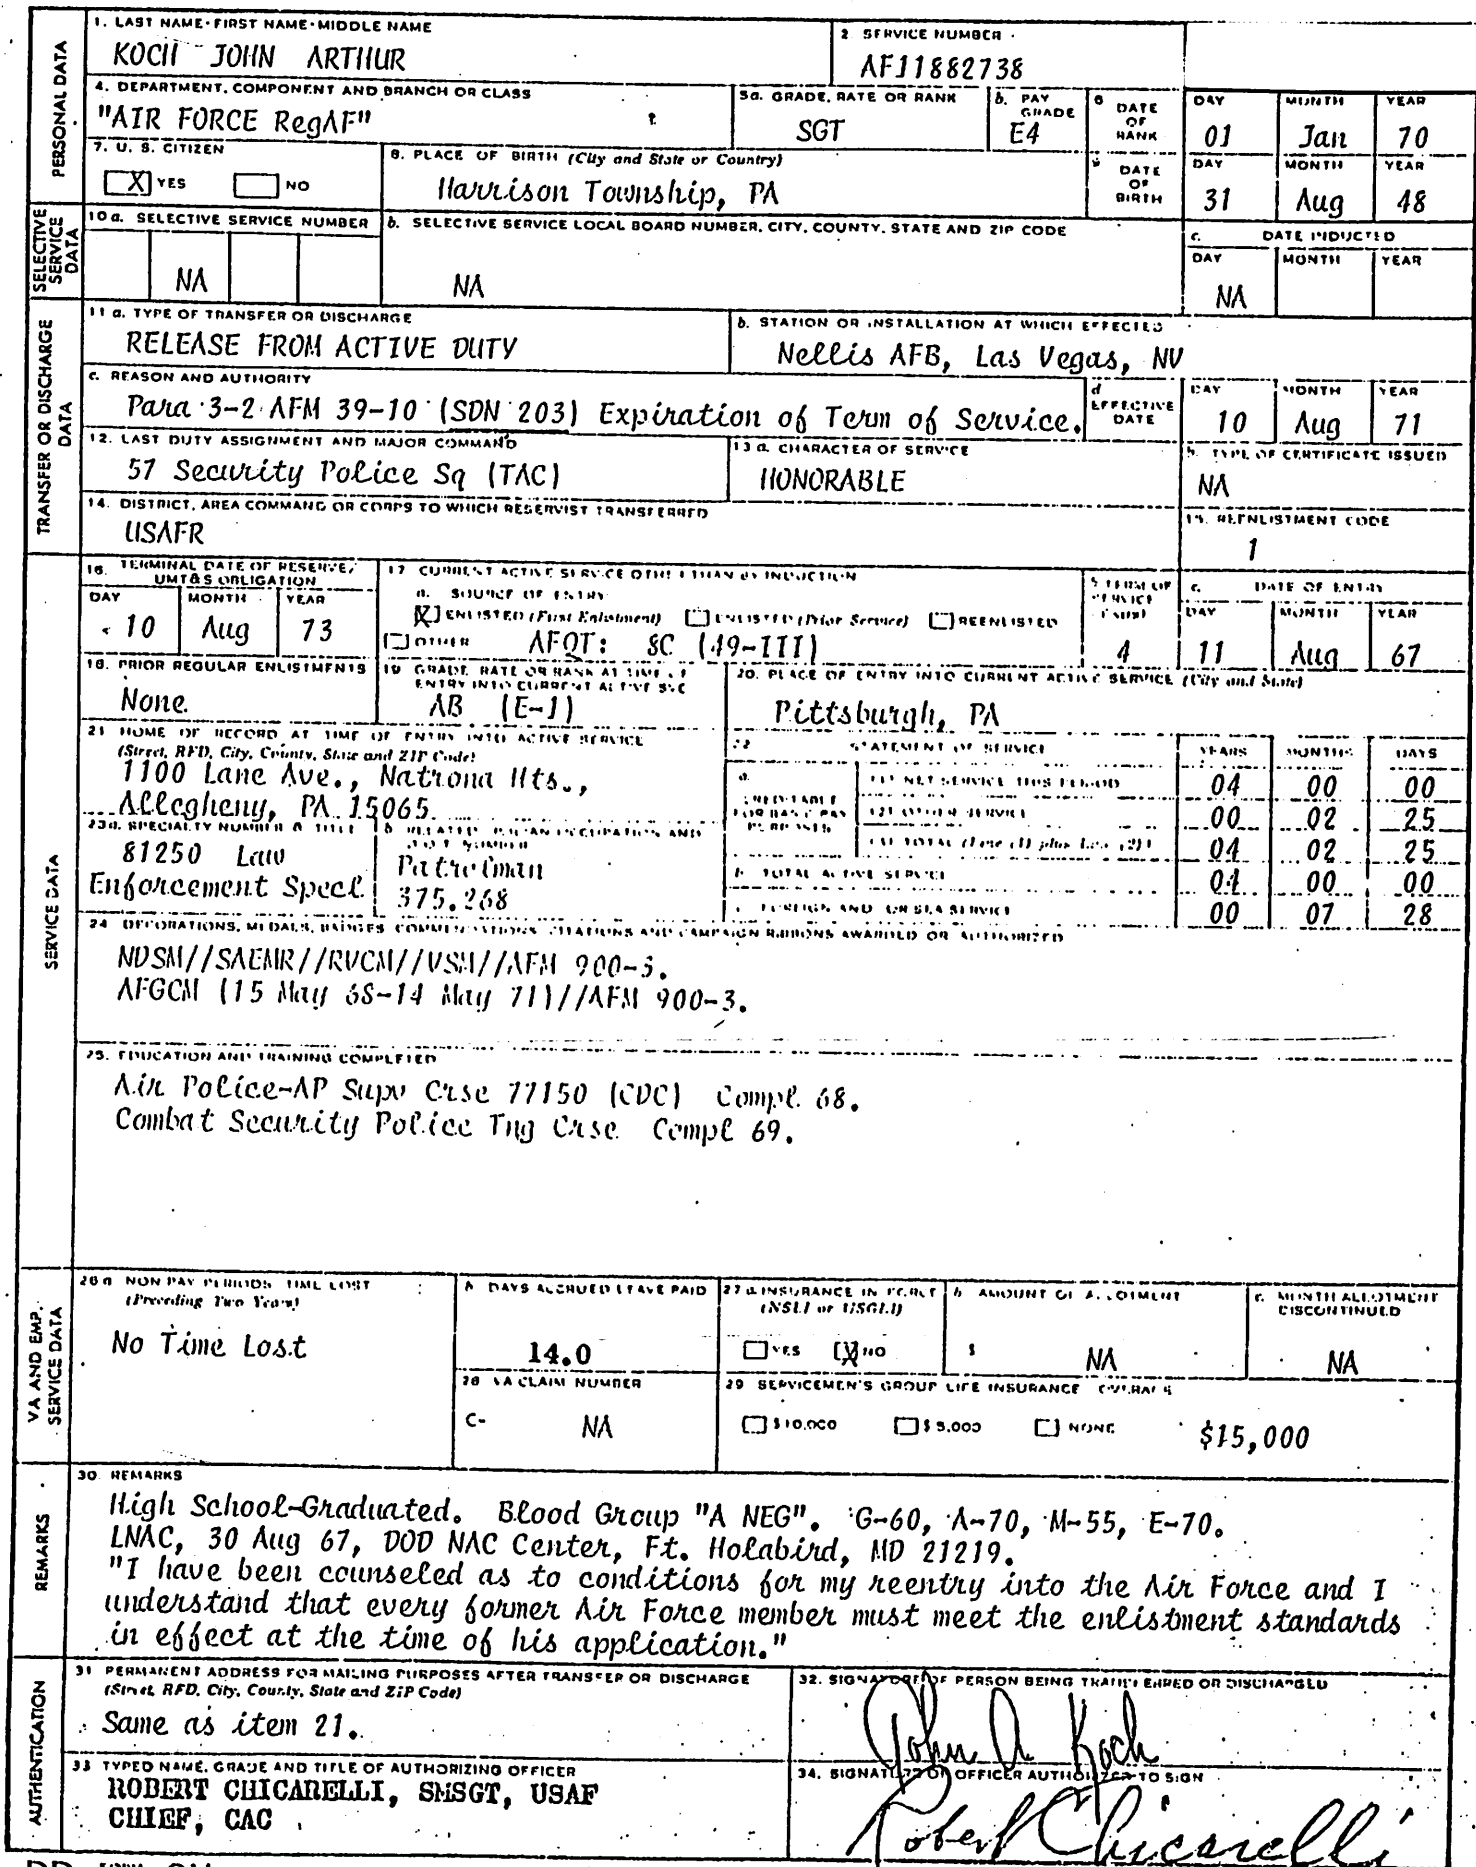 PERSONAL DATA
1. LAST NAME-FIRST NAME-MIDDLE NAME
KOCH JOHN ARTHUR
2 SERVICE NUMBER
AF11882738
4. DEPARTMENT, COMPONENT AND BRANCH OR CLASS
"AIR FORCE RegAF"
5a. GRADE, RATE OR RANK
SGT
b. PAY GRADE
E4
6 DATE OF RANK
DAY MONTH YEAR
01 Jan 70
7. U. S. CITIZEN
X YES NO
8. PLACE OF BIRTH (City and State or Country)
Harrison Township, PA
9 DATE OF BIRTH
DAY MONTH YEAR
31 Aug 48
SELECTIVE SERVICE DATA
10a. SELECTIVE SERVICE NUMBER
NA
b. SELECTIVE SERVICE LOCAL BOARD NUMBER, CITY, COUNTY, STATE AND ZIP CODE
NA
c. DATE INDUCTED
DAY MONTH YEAR
NA
TRANSFER OR DISCHARGE DATA
11a. TYPE OF TRANSFER OR DISCHARGE
RELEASE FROM ACTIVE DUTY
b. STATION OR INSTALLATION AT WHICH EFFECTED
Nellis AFB, Las Vegas, NV
c. REASON AND AUTHORITY
Para 3-2 AFM 39-10 (SDN 203) Expiration of Term of Service.
d EFFECTIVE DATE
DAY MONTH YEAR
10 Aug 71
12. LAST DUTY ASSIGNMENT AND MAJOR COMMAND
57 Security Police Sq (TAC)
13a. CHARACTER OF SERVICE
HONORABLE
b. TYPE OF CERTIFICATE ISSUED
NA
14. DISTRICT, AREA COMMAND OR CORPS TO WHICH RESERVIST TRANSFERRED
USAFR
15. REENLISTMENT CODE
1
SERVICE DATA
16. TERMINAL DATE OF RESERVE/ UMT&S OBLIGATION
DAY MONTH YEAR
10 Aug 73
17 CURRENT ACTIVE SERVICE OTHER THAN BY INDUCTION
a. SOURCE OF ENTRY
X ENLISTED (First Enlistment) ENLISTED (Prior Service) REENLISTED
OTHER AFQT: 8C (49-III)
b TERM OF SERVICE
4
c. DATE OF ENTRY
DAY MONTH YEAR
11 Aug 67
18. PRIOR REGULAR ENLISTMENTS
None
19 GRADE, RATE OR RANK AT TIME OF ENTRY INTO CURRENT ACTIVE SVC
AB (E-1)
20. PLACE OF ENTRY INTO CURRENT ACTIVE SERVICE (City and State)
Pittsburgh, PA
21 HOME OF RECORD AT TIME OF ENTRY INTO ACTIVE SERVICE
(Street, RFD, City, County, State and ZIP Code)
1100 Lane Ave., Natrona Hts.,
Allegheny, PA 15065
22 STATEMENT OF SERVICE
YEARS MONTHS DAYS
a. CREDITABLE FOR BASIC PAY PURPOSES
(1) NET SERVICE THIS PERIOD
04 00 00
(2) OTHER SERVICE
00 02 25
(3) TOTAL (Line (1) plus Line (2))
04 02 25
b. TOTAL ACTIVE SERVICE
04 00 00
c. FOREIGN AND/OR SEA SERVICE
00 07 28
23a. SPECIALTY NUMBER & TITLE
81250 Law
Enforcement Specl
b RELATED CIVILIAN OCCUPATION AND D.O.T. NUMBER
Patrolman
375.268
24 DECORATIONS, MEDALS, BADGES, COMMENDATIONS, CITATIONS AND CAMPAIGN RIBBONS AWARDED OR AUTHORIZED
NDSM//SAEMR//RVCM//VSM//AFM 900-3.
AFGCM (15 May 68-14 May 71)//AFM 900-3.
25. EDUCATION AND TRAINING COMPLETED
Air Police-AP Supv Crse 77150 (CDC) Compl 68.
Combat Security Police Tng Crse Compl 69.
VA AND EMP. SERVICE DATA
26a NON PAY PERIODS TIME LOST
(Preceding Two Years)
No Time Lost
b DAYS ACCRUED LEAVE PAID
14.0
27a INSURANCE IN FORCE
(NSLI or USGLI)
YES X NO
b AMOUNT OF ALLOTMENT
$ NA
c. MONTH ALLOTMENT DISCONTINUED
NA
28 VA CLAIM NUMBER
C- NA
29 SERVICEMEN'S GROUP LIFE INSURANCE COVERAGE
$10,000 $5,000 NONE $15,000
REMARKS
30. REMARKS
High School-Graduated. Blood Group "A NEG". G-60, A-70, M-55, E-70.
LNAC, 30 Aug 67, DOD NAC Center, Ft. Holabird, MD 21219.
"I have been counseled as to conditions for my reentry into the Air Force and I
understand that every former Air Force member must meet the enlistment standards
in effect at the time of his application."
AUTHENTICATION
31 PERMANENT ADDRESS FOR MAILING PURPOSES AFTER TRANSFER OR DISCHARGE
(Street, RFD, City, County, State and ZIP Code)
Same as item 21.
32. SIGNATURE OF PERSON BEING TRANSFERRED OR DISCHARGED
John A Koch
33 TYPED NAME, GRADE AND TITLE OF AUTHORIZING OFFICER
ROBERT CHICARELLI, SMSGT, USAF
CHIEF, CAC
34. SIGNATURE OF OFFICER AUTHORIZED TO SIGN
Robert Chicarelli